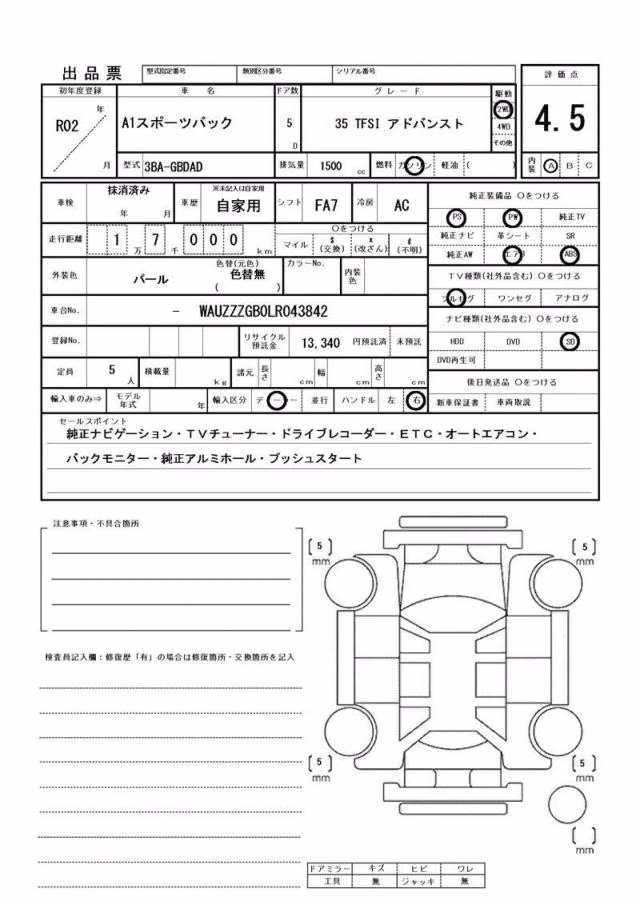 出品票 型式指定番号 類別区分番号 シリアル番号 評価点
初年度登録 車名 ドア数 グレード 駆動
R02 年 月 A1スポーツバック 5 D 35 TFSI アドバンスト 2WD 4WD その他 4.5
型式 3BA-GBDAD 排気量 1500 cc 燃料 ガソリン 軽油 ( ) 内装 A B C
車検 抹消済み 年 月 車歴 ※未記入は自家用 自家用 シフト FA7 冷房 AC 純正装備品 ○をつける
PS PW 純正TV
走行距離 1 万 7 千 0 0 0 km ○をつける マイル $ (交換) * (改ざん) # (不明) 純正ナビ 革シート SR
純正AW エアB ABS
外装色 パール 色替(元色) 色替無 ( ) カラーNo. 内装色 TV種類(社外品含む) ○をつける
フルセグ ワンセグ アナログ
車台No. - WAUZZZGB0LR043842 ナビ種類(社外品含む) ○をつける
登録No. リサイクル預託金 13,340 円預託済 未預託 HDD DVD SD
DVD再生可
定員 5 人 積載量 kg 諸元 長さ cm 幅 cm 高さ cm 後日発送品 ○をつける
輸入車のみ⇒ モデル年式 年 輸入区分 ディーラー 並行 ハンドル 左 右 新車保証書 車両取説
セールスポイント
純正ナビゲーション・TVチューナー・ドライブレコーダー・ETC・オートエアコン・
バックモニター・純正アルミホール・プッシュスタート
注意事項・不具合箇所
[5] mm [5] mm
検査員記入欄:修復歴「有」の場合は修復箇所・交換箇所を記入
[5] mm [5] mm
[ ] mm
ドアミラー キズ ヒビ ワレ
工具 無 ジャッキ 無